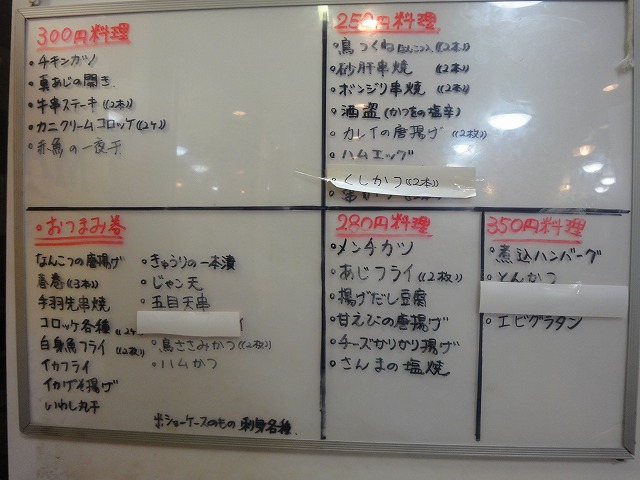 300円料理
・チキンカツ
・真あじの開き
・牛串ステーキ((2本))
・カニクリームコロッケ((2ケ))
・赤魚の一夜干
250円料理
・鳥つくね(なんこつ入)((2本))
・砂肝串焼((2本))
・ボンジリ串焼((2本))
・酒盗(かつをの塩辛)
・カレイの唐揚げ((2枚))
・ハムエッグ
・くしかつ((2本))
・おつまみ巻
なんこつの唐揚げ
春巻((3本))
手羽先串焼
コロッケ各種((2ケ
白身魚フライ((2枚))
イカフライ
イカゲソ揚げ
いわし丸干
・きゅうりの一本漬
・じゃン天
・五目天串
・鳥ささみかつ((2枚))
・ハムかつ
※ショーケースのもの 刺身各種
280円料理
・メンチカツ
・あじフライ((2枚))
・揚げだし豆腐
・甘えびの唐揚げ
・チーズかりかり揚げ
・さんまの塩焼
350円料理
・煮込ハンバーグ
・とんかつ
・エビグラタン